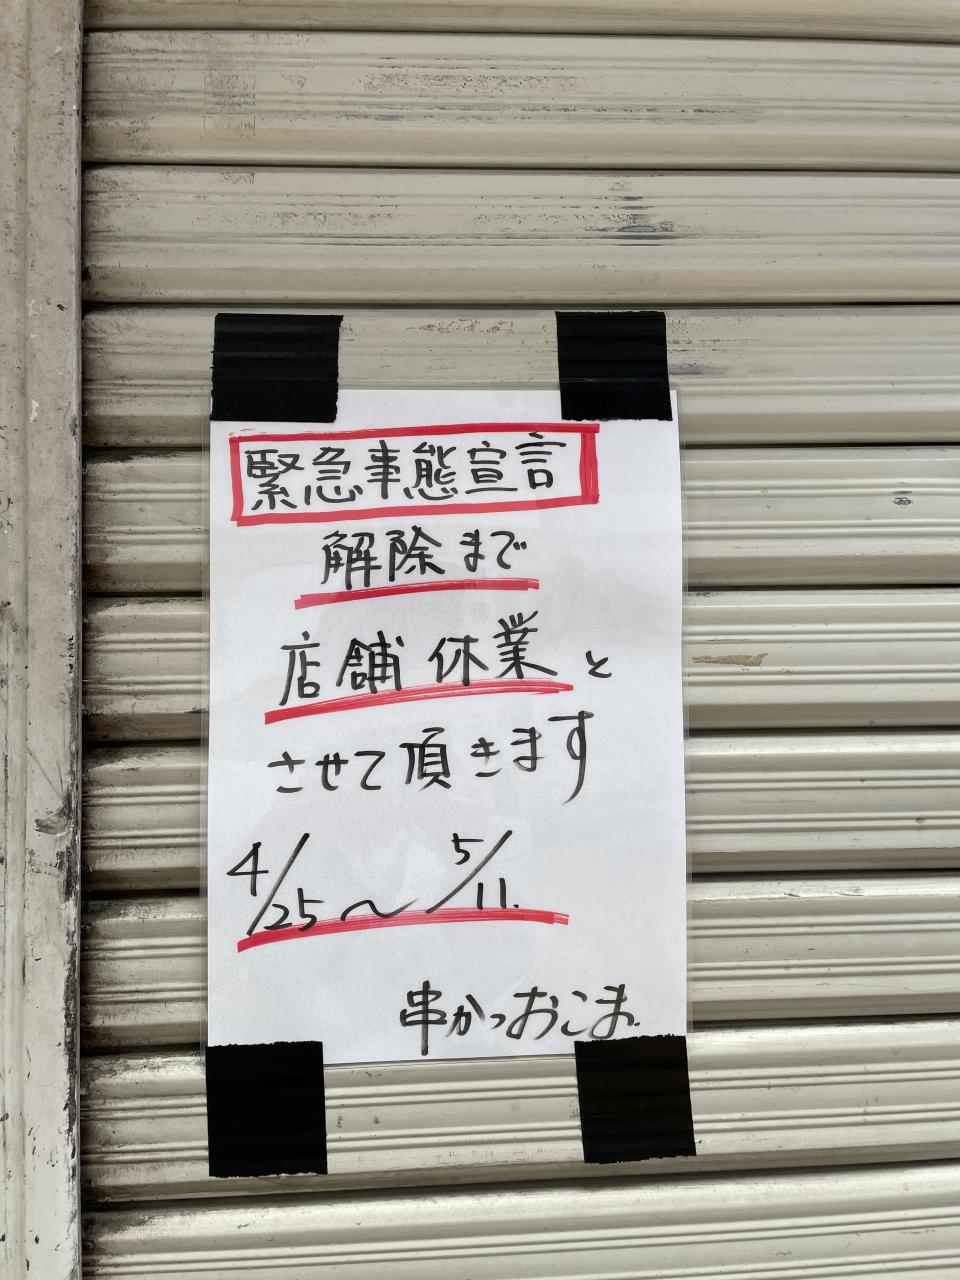 緊急事態宣言
解除まで
店舗休業と
させて頂きます
4/25〜5/11.
串かつおこま